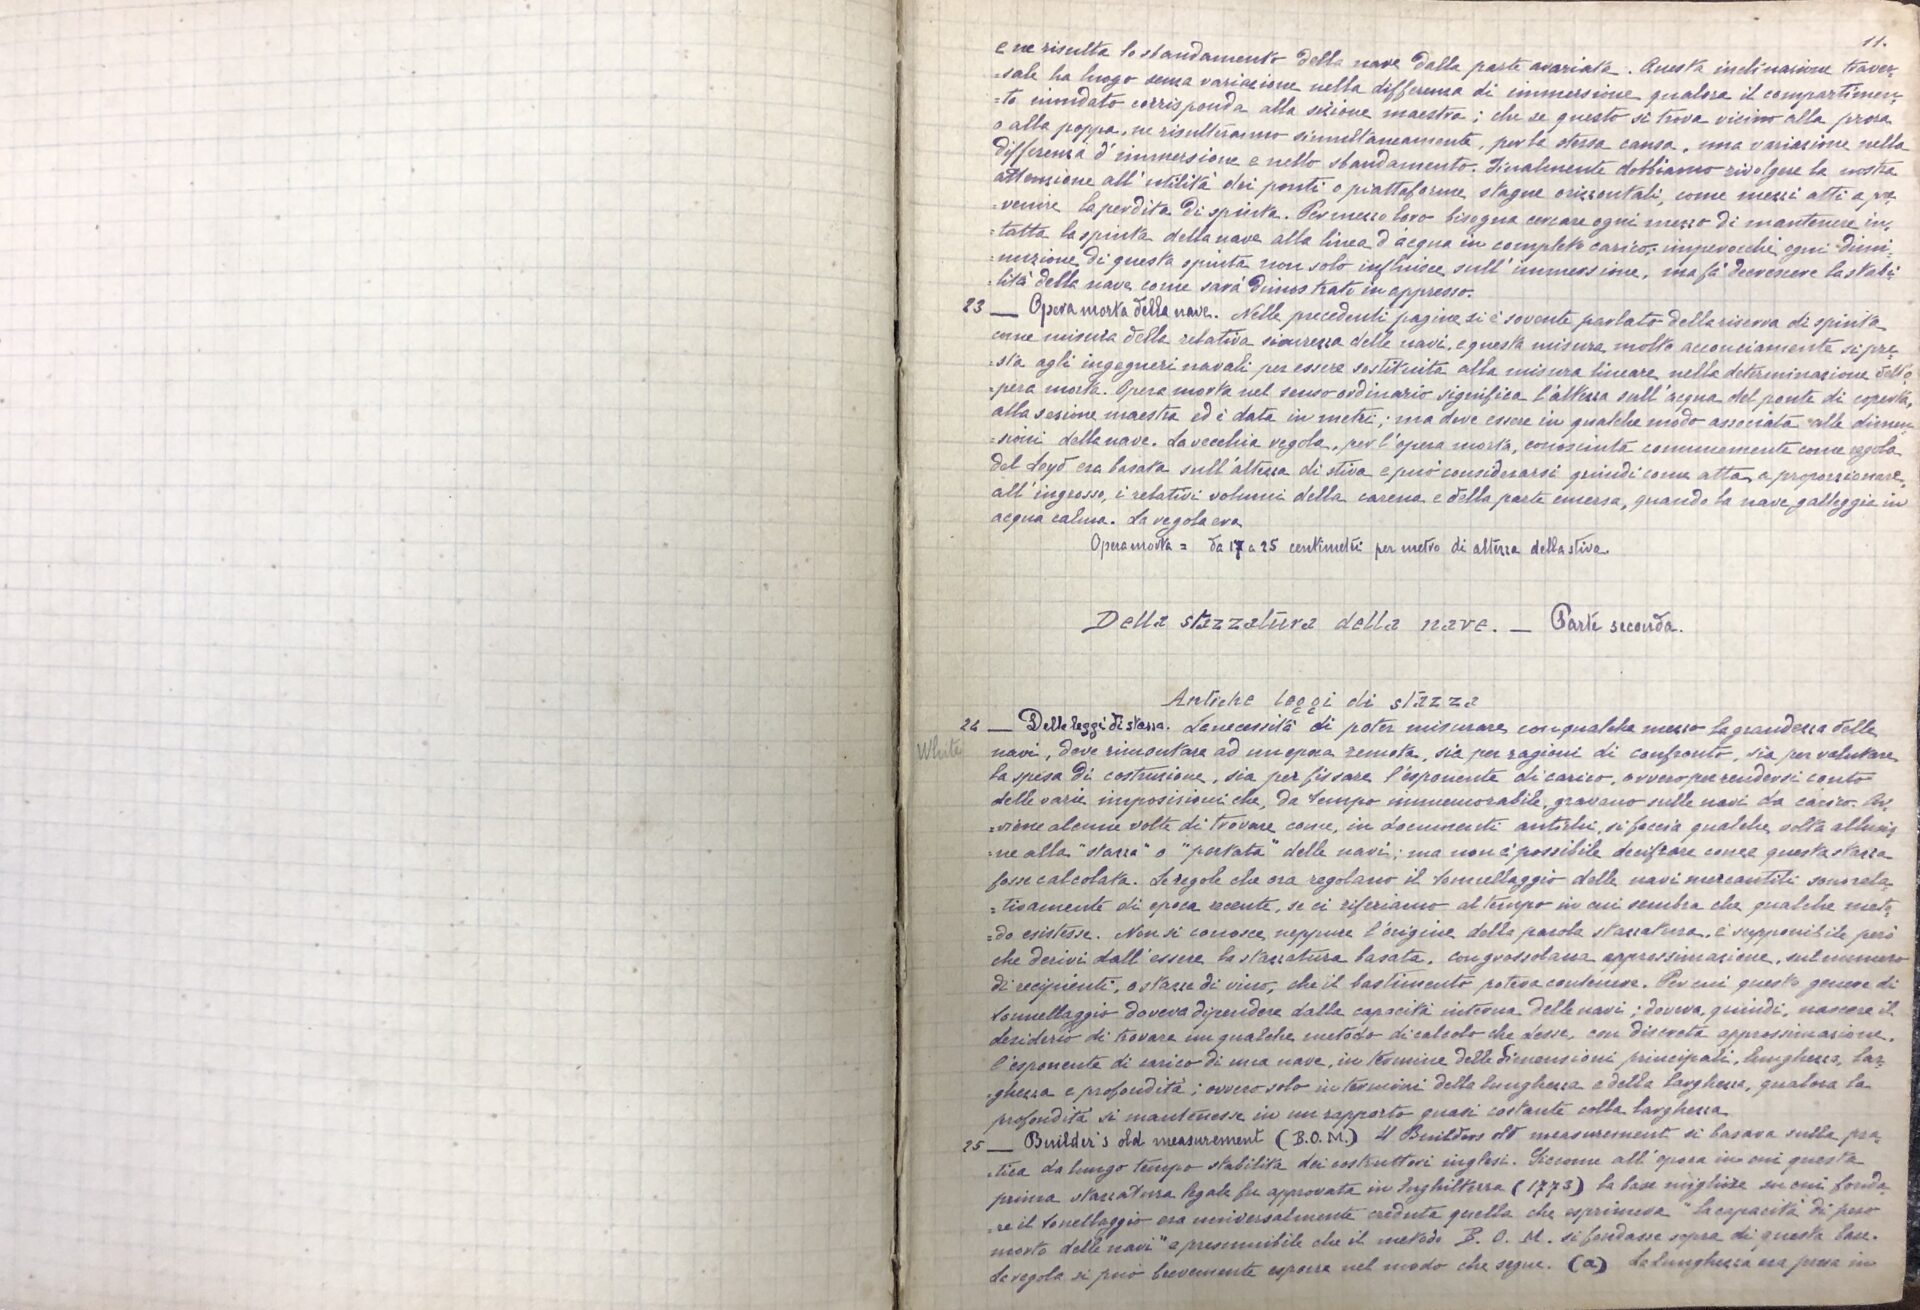 11.
e ne risulta lo sbandamento della nave dalla parte avariata. Questa inclinazione traver=
=sale ha luogo senza variazione nella differenza di immersione qualora il compartimen=
=to inondato corrisponda alla sezione maestra; che se questo si trova vicino alla prora
o alla poppa, ne risulteranno simultaneamente, per la stessa causa, una variazione nella
differenza d'immersione e nello sbandamento. Finalmente dobbiamo rivolgere la nostra
attenzione all'utilità dei ponti o piattaforme stagne orizzontali, come mezzi atti a pre=
=venire la perdita di spinta. Per mezzo loro bisogna cercare ogni mezzo di mantenere in=
=tatta la spinta della nave alla linea d'acqua in completo carico; imperocchè ogni dimi=
=nuzione di questa spinta non solo influisce sull'immersione, ma fa decrescere la stabi=
=lità della nave come sarà dimostrato in appresso.
23 — Opera morta della nave. Nelle precedenti pagine si è sovente parlato della riserva di spinta
come misura della relativa sicurezza delle navi, e questa misura molto acconciamente si pre=
=sta agli ingegneri navali per essere sostituita alla misura lineare nella determinazione dell'o=
=pera morta. Opera morta nel senso ordinario significa l'altezza sull'acqua del ponte di coperta,
alla sezione maestra ed è data in metri; ma deve essere in qualche modo associata alle dimen=
=sioni della nave. La vecchia regola, per l'opera morta, conosciuta comunemente come regola
del Loyd era basata sull'altezza di stiva e può considerarsi quindi come atta a proporzionare,
all'ingrosso, i relativi volumi della carena e della parte emersa, quando la nave galleggia in
acqua calma. La regola era
Opera morta = da 17 a 25 centimetri per metro di altezza della stiva.
Della stazzatura della nave. — Parte seconda.
Antiche leggi di stazza
24 — Delle leggi di stazza. La necessità di poter misurare con qualche mezzo la grandezza delle
White
navi, deve rimontare ad un epoca remota, sia per ragioni di confronto, sia per valutare
la spesa di costruzione, sia per fissare l'esponente di carico, ovvero per rendersi conto
delle varie imposizioni che, da tempo immemorabile, gravano sulle navi da carico. Av=
=viene alcune volte di trovare come, in documenti antichi, si faccia qualche volta allusio=
=ne alla "stazza" o "portata" delle navi; ma non è possibile decifrare come questa stazza
fosse calcolata. Le regole che ora regolano il tonnellaggio delle navi mercantili sono rela=
=tivamente di epoca recente, se ci riferiamo al tempo in cui sembra che qualche meto=
=do esistesse. Non si conosce neppure l'origine della parola stazzatura, è supponibile però
che derivi dall'essere la stazzatura basata, con grossolana approssimazione, sul numero
di recipienti, o stazze di vino, che il bastimento poteva contenere. Per cui questo genere di
tonnellaggio doveva dipendere dalla capacità interna delle navi; doveva, quindi, nascere il
desiderio di trovare un qualche metodo di calcolo che desse, con discreta approssimazione,
l'esponente di carico di una nave, in termine delle dimensioni principali, lunghezza, lar=
=ghezza e profondità; ovvero solo in termini della lunghezza e della larghezza, qualora la
profondità si mantenesse in un rapporto quasi costante colla larghezza
25 — Builder's old measurement (B.O.M.) Il Builders old measurement si basava sulla pra=
=tica da lungo tempo stabilita dei costruttori inglesi. Siccome all'epoca in cui questa
prima stazzatura legale fu approvata in Inghilterra (1773) la base migliore su cui fonda=
=re il tonellaggio era universalmente creduta quella che esprimeva "la capacità di peso
morto delle navi" è presumibile che il metodo B. O. M. si fondasse sopra di questa base.
La regola si può brevemente esporre nel modo che segue. (a) La lunghezza era presa in